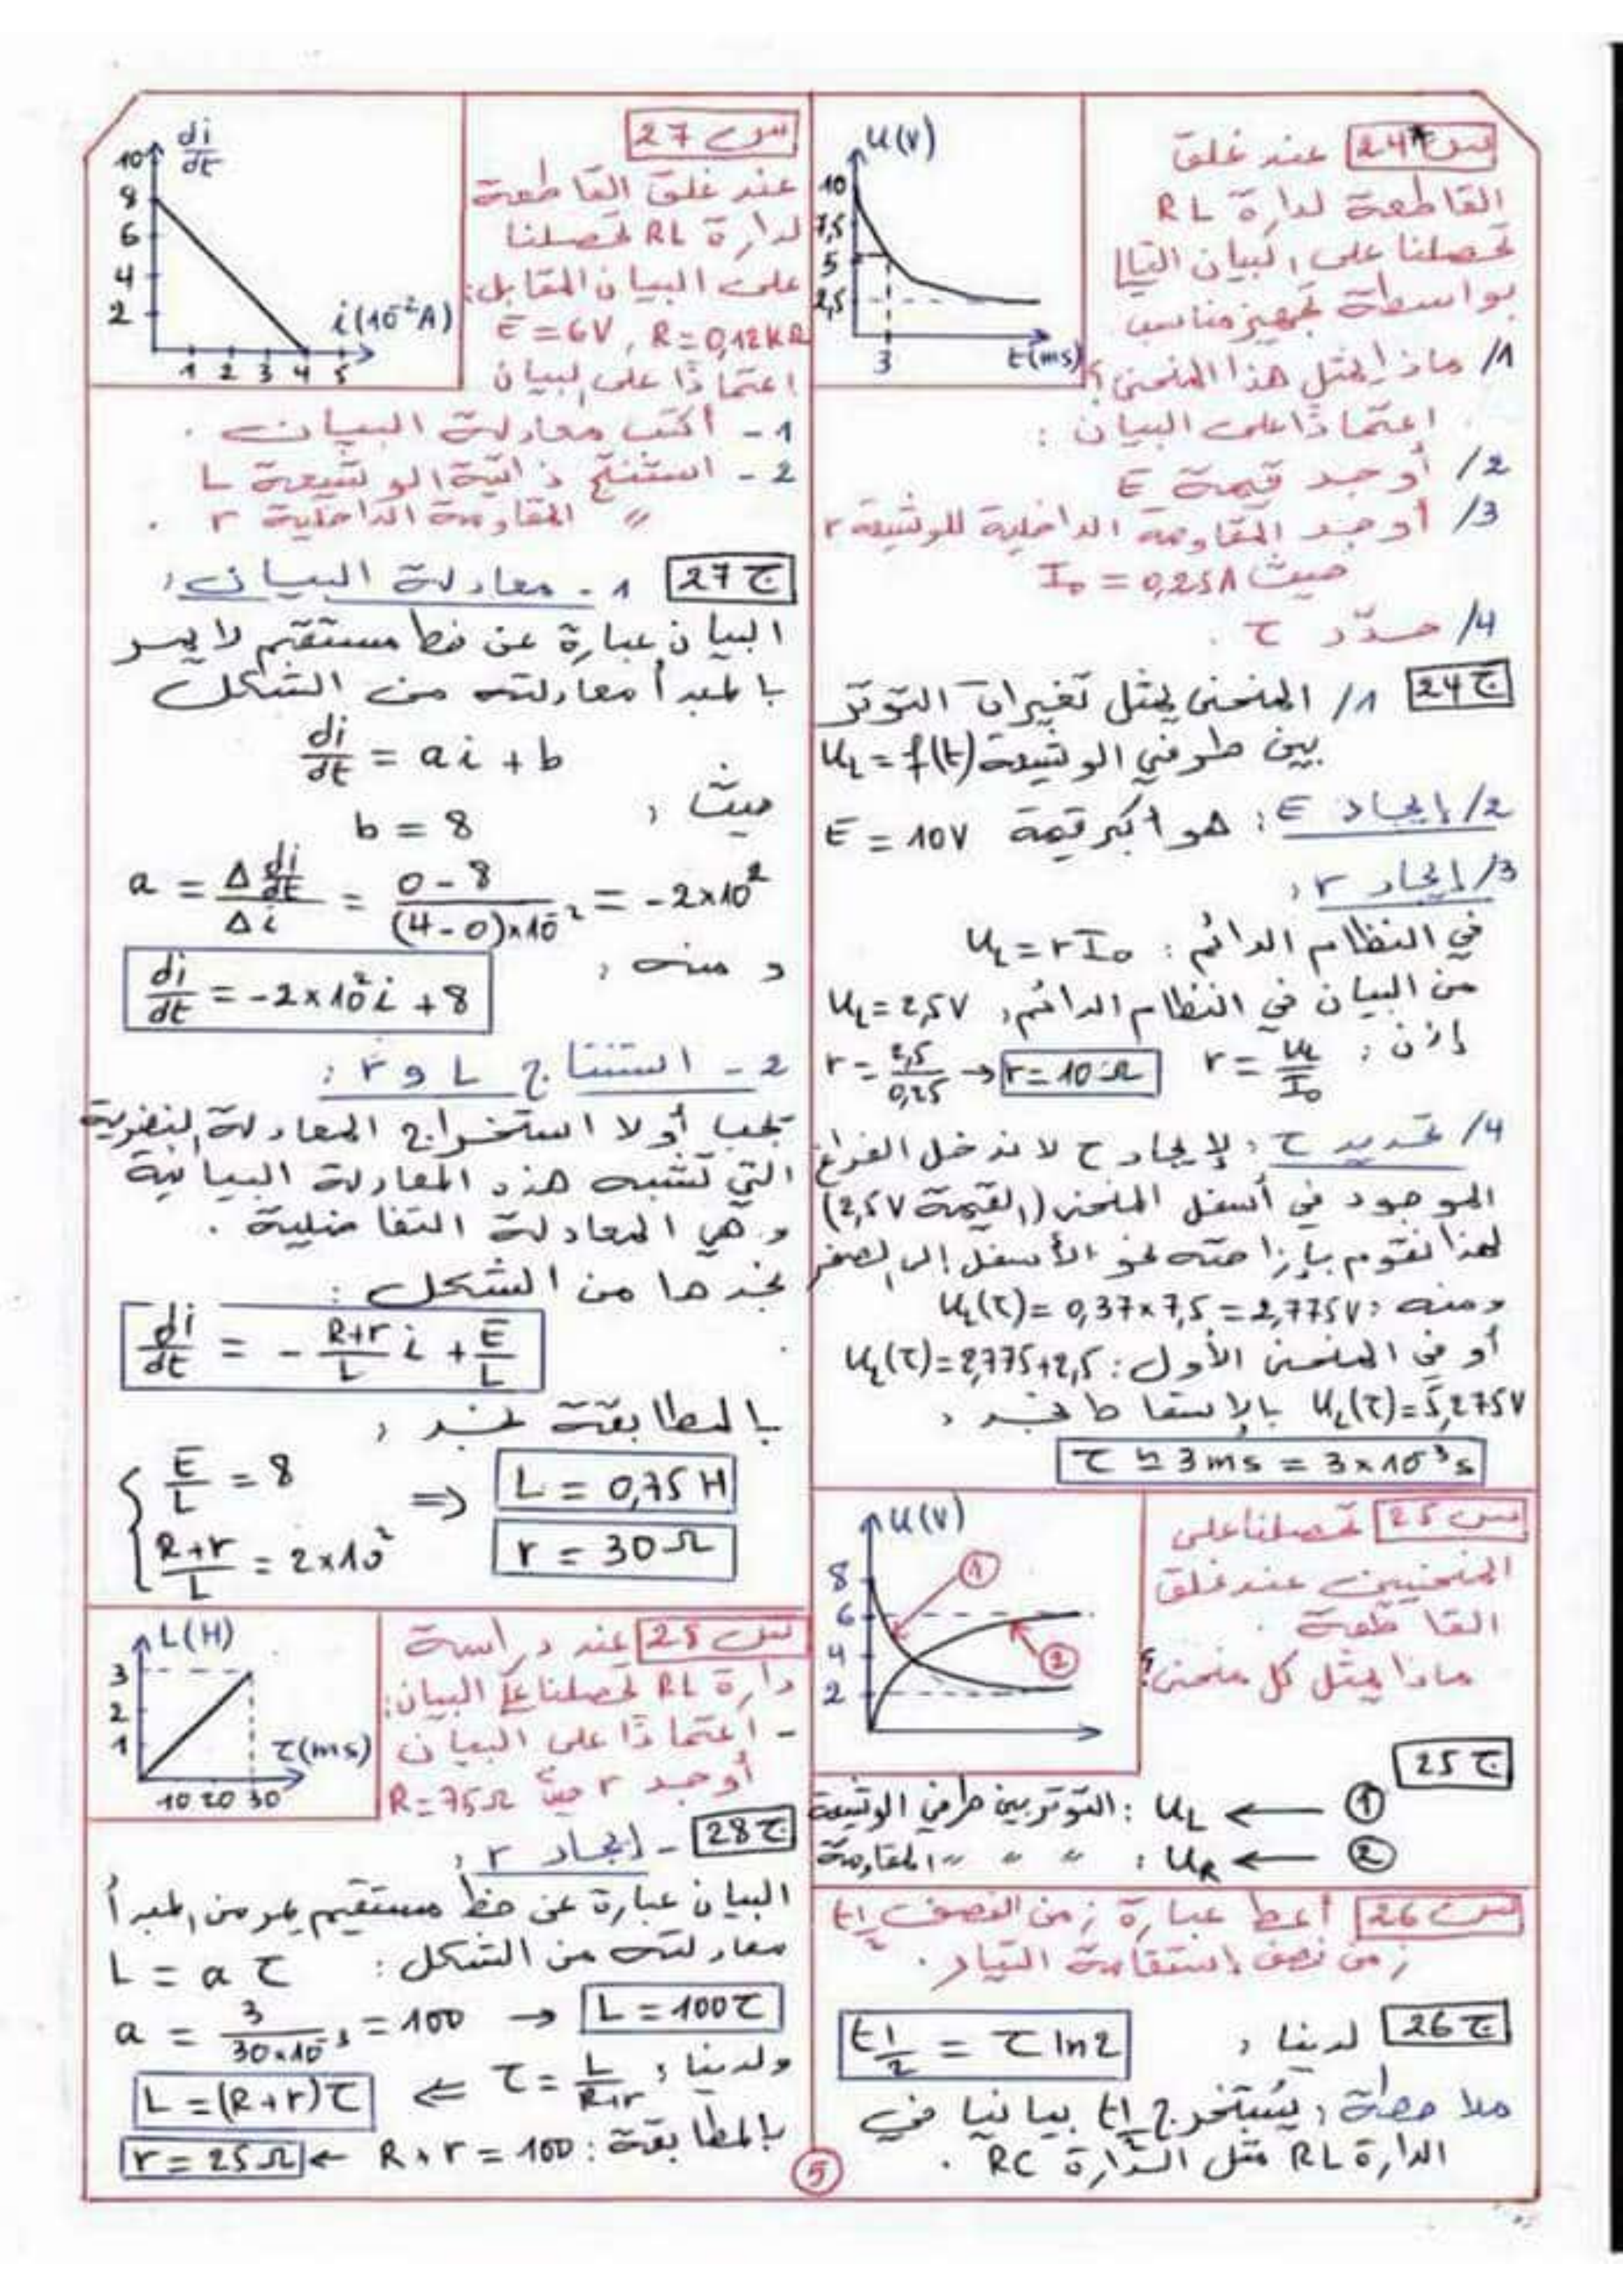 س 24 عند غلق
القاطعة لدارة RL
تحصلنا على البيان التالي
بواسطة تجهيز مناسب
1/ ماذا يمثل هذا المنحنى؟
اعتمادًا على البيان :
2/ أوجد قيمة E
3/ أوجد المقاومة الداخلية للوشيعة r
حيث I₀ = 0,25A
4/ حدّد τ .
U(V)
10
7,5
5
2,5
3
t(ms)
ج 24
1/ المنحنى يمثل تغيرات التوتر
بين طرفي الوشيعة U_L = f(t)
2/ إيجاد E : هو أكبر قيمة E = 10V
3/ إيجاد r :
في النظام الدائم : U_L = r I₀
من البيان في النظام الدائم: U_L = 2,5V
إذن : r = U_L/I₀ r = 2,5/0,25 → r = 10 Ω
4/ تحديد τ : لإيجاد τ لا ندخل الفراغ
الموجود في أسفل المنحنى (القيمة 2,5V)
لهذا نقوم بإزاحته نحو الأسفل إلى الصفر
ومنه : U_L(τ) = 0,37×7,5 = 2,775V
أو في المنحنى الأول : U_L(τ) = 2,775+2,5
U_L(τ) = 5,275V بالإسقاط نجد :
τ ≃ 3ms = 3×10⁻³s
س 25 تحصلنا على
المنحنيين عند غلق
القاطعة .
ماذا يمثل كل منحنى؟
U(V)
8
6
4
2
①
②
ج 25
① ← U_L : التوتر بين طرفي الوشيعة
② ← U_R : " " " المقاومة
س 26 أعط عبارة زمن النصف t1/2
زمن نصف استقامة التيار .
ج 26 لدينا : t1/2 = τ ln2
ملاحظة : يُستخرج t1/2 بيانيا في
الدارة RL مثل الدّارة RC .
س 27
عند غلق القاطعة
لدارة RL تحصلنا
على البيان المقابل :
E = 6V , R = 0,12KΩ
اعتمادًا على البيان
1 - أكتب معادلة البيان .
2 - استنتج ذاتية الوشيعة L
" المقاومة الداخلية r .
di/dt
10
8
6
4
2
1 2 3 4 5
i(10⁻²A)
ج 27 1 - معادلة البيان :
البيان عبارة عن خط مستقيم لا يمر
بالمبدأ معادلته من الشكل
di/dt = a i + b
حيث :
b = 8
a = Δ di/dt / Δi = 0-8 / (4-0)×10⁻² = -2×10²
ومنه :
di/dt = -2×10² i + 8
2 - استنتاج L و r :
يجب أولا استخراج المعادلة النضرية
التي تشبه هذه المعادلة البيانية
وهي المعادلة التفاضلية .
نجدها من الشكل :
di/dt = - R+r/L i + E/L
بالمطابقة نجد :
E/L = 8 ⇒ L = 0,75 H
R+r/L = 2×10² r = 30 Ω
س 28 عند دراسة
دارة RL تحصلنا على البيان :
- اعتمادًا على البيان
أوجد r حيث R = 75Ω
L(H)
3
2
1
10 20 30
τ(ms)
ج 28 - إيجاد r :
البيان عبارة عن خط مستقيم يمر من المبدأ
معادلته من الشكل : L = a τ
a = 3 / 30×10⁻³ = 100 → L = 100τ
ولدينا : τ = L/R+r ⇐ L = (R+r)τ
بالمطابقة : R+r = 100 ← r = 25Ω
5